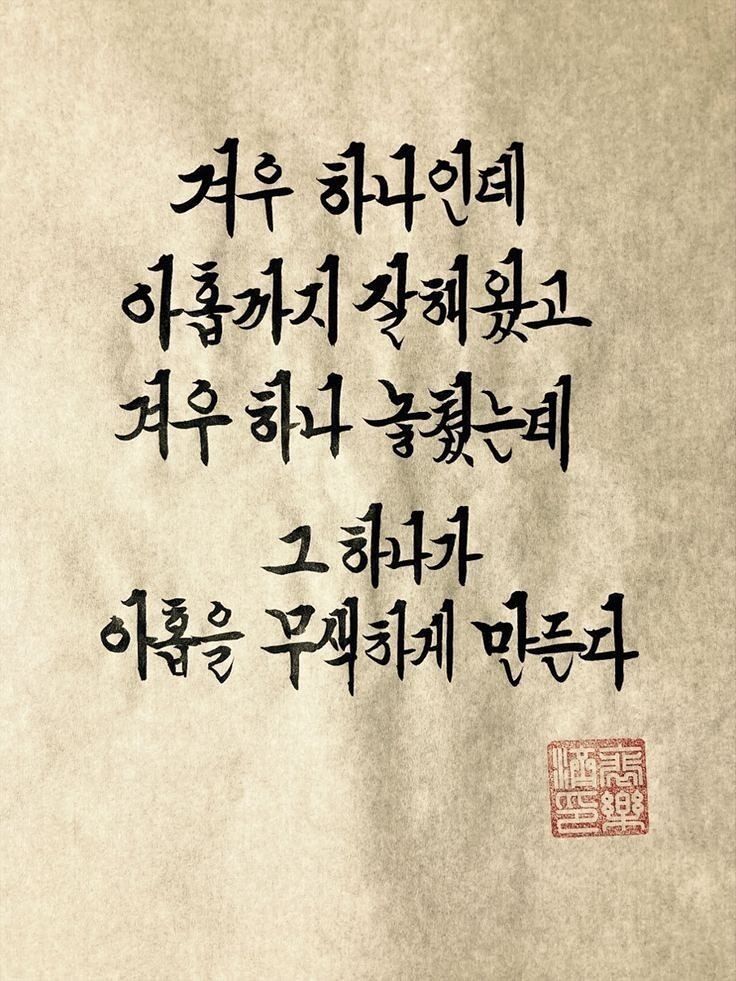 겨우 하나인데
아홉까지 잘해왔고
겨우 하나 놓쳤는데
그 하나가
아홉을 무색하게 만든다